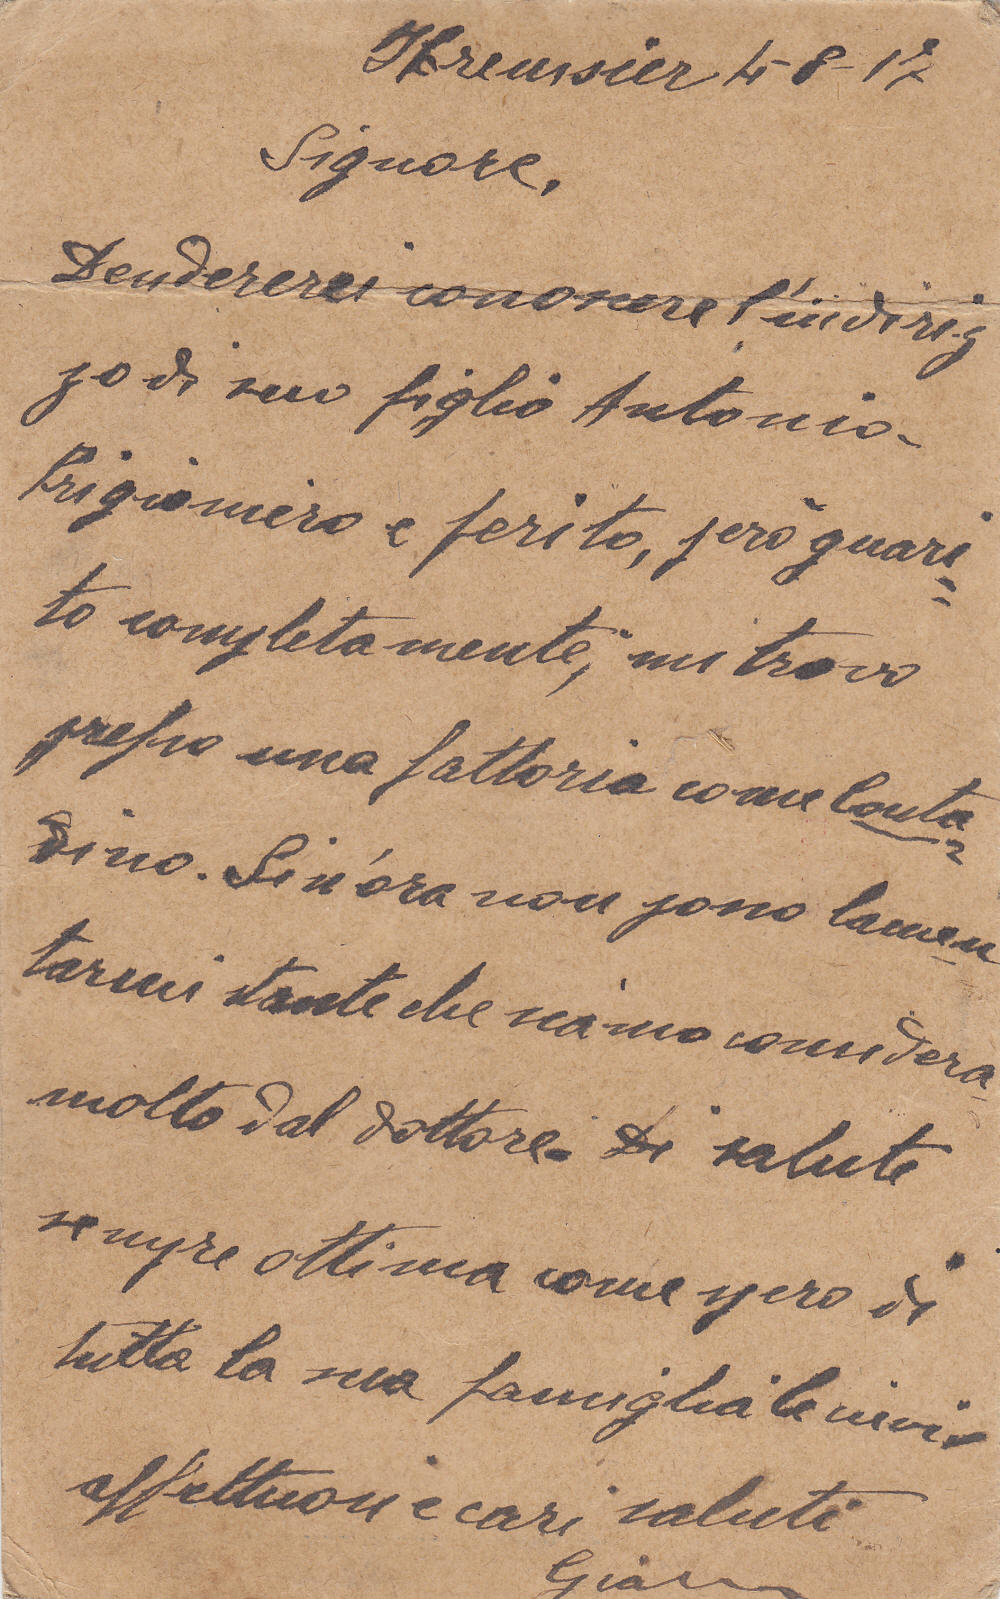 Kremsier 4-8-17
Signore,
Desidererei conoscere l'indiriz
zo di suo figlio Antonio-
Prigioniero e ferito, però guari=
to completamente, mi trovo
presso una fattoria come Conta=
dino. Sin'ora non posso lamen
tarmi stante che siamo considera
molto dal dottore. Di salute
sempre ottima come spero di
tutta la sua famiglia le invio
affettuosi e cari saluti